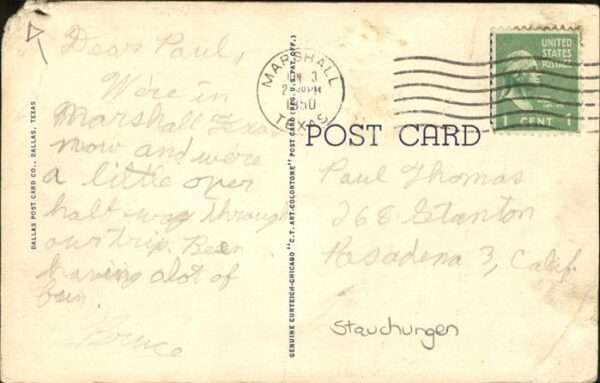 Dear Paul,
We're in
Marshall Texas
now and we're
a little over
half way through
our trip. Been
having alot of
fun.
Bruce
DALLAS POST CARD CO., DALLAS, TEXAS
GENUINE CURTEICH-CHICAGO "C.T. ART-COLORTONE" POST CARD (REG. U.S. PAT. OFF.)
MARSHALL
3
1950
TEXAS
UNITED
STATES
POSTAGE
1 CENT 1
POST CARD
Paul Thomas
268 Stanton
Pasadena 3, Calif.
Stauchungen